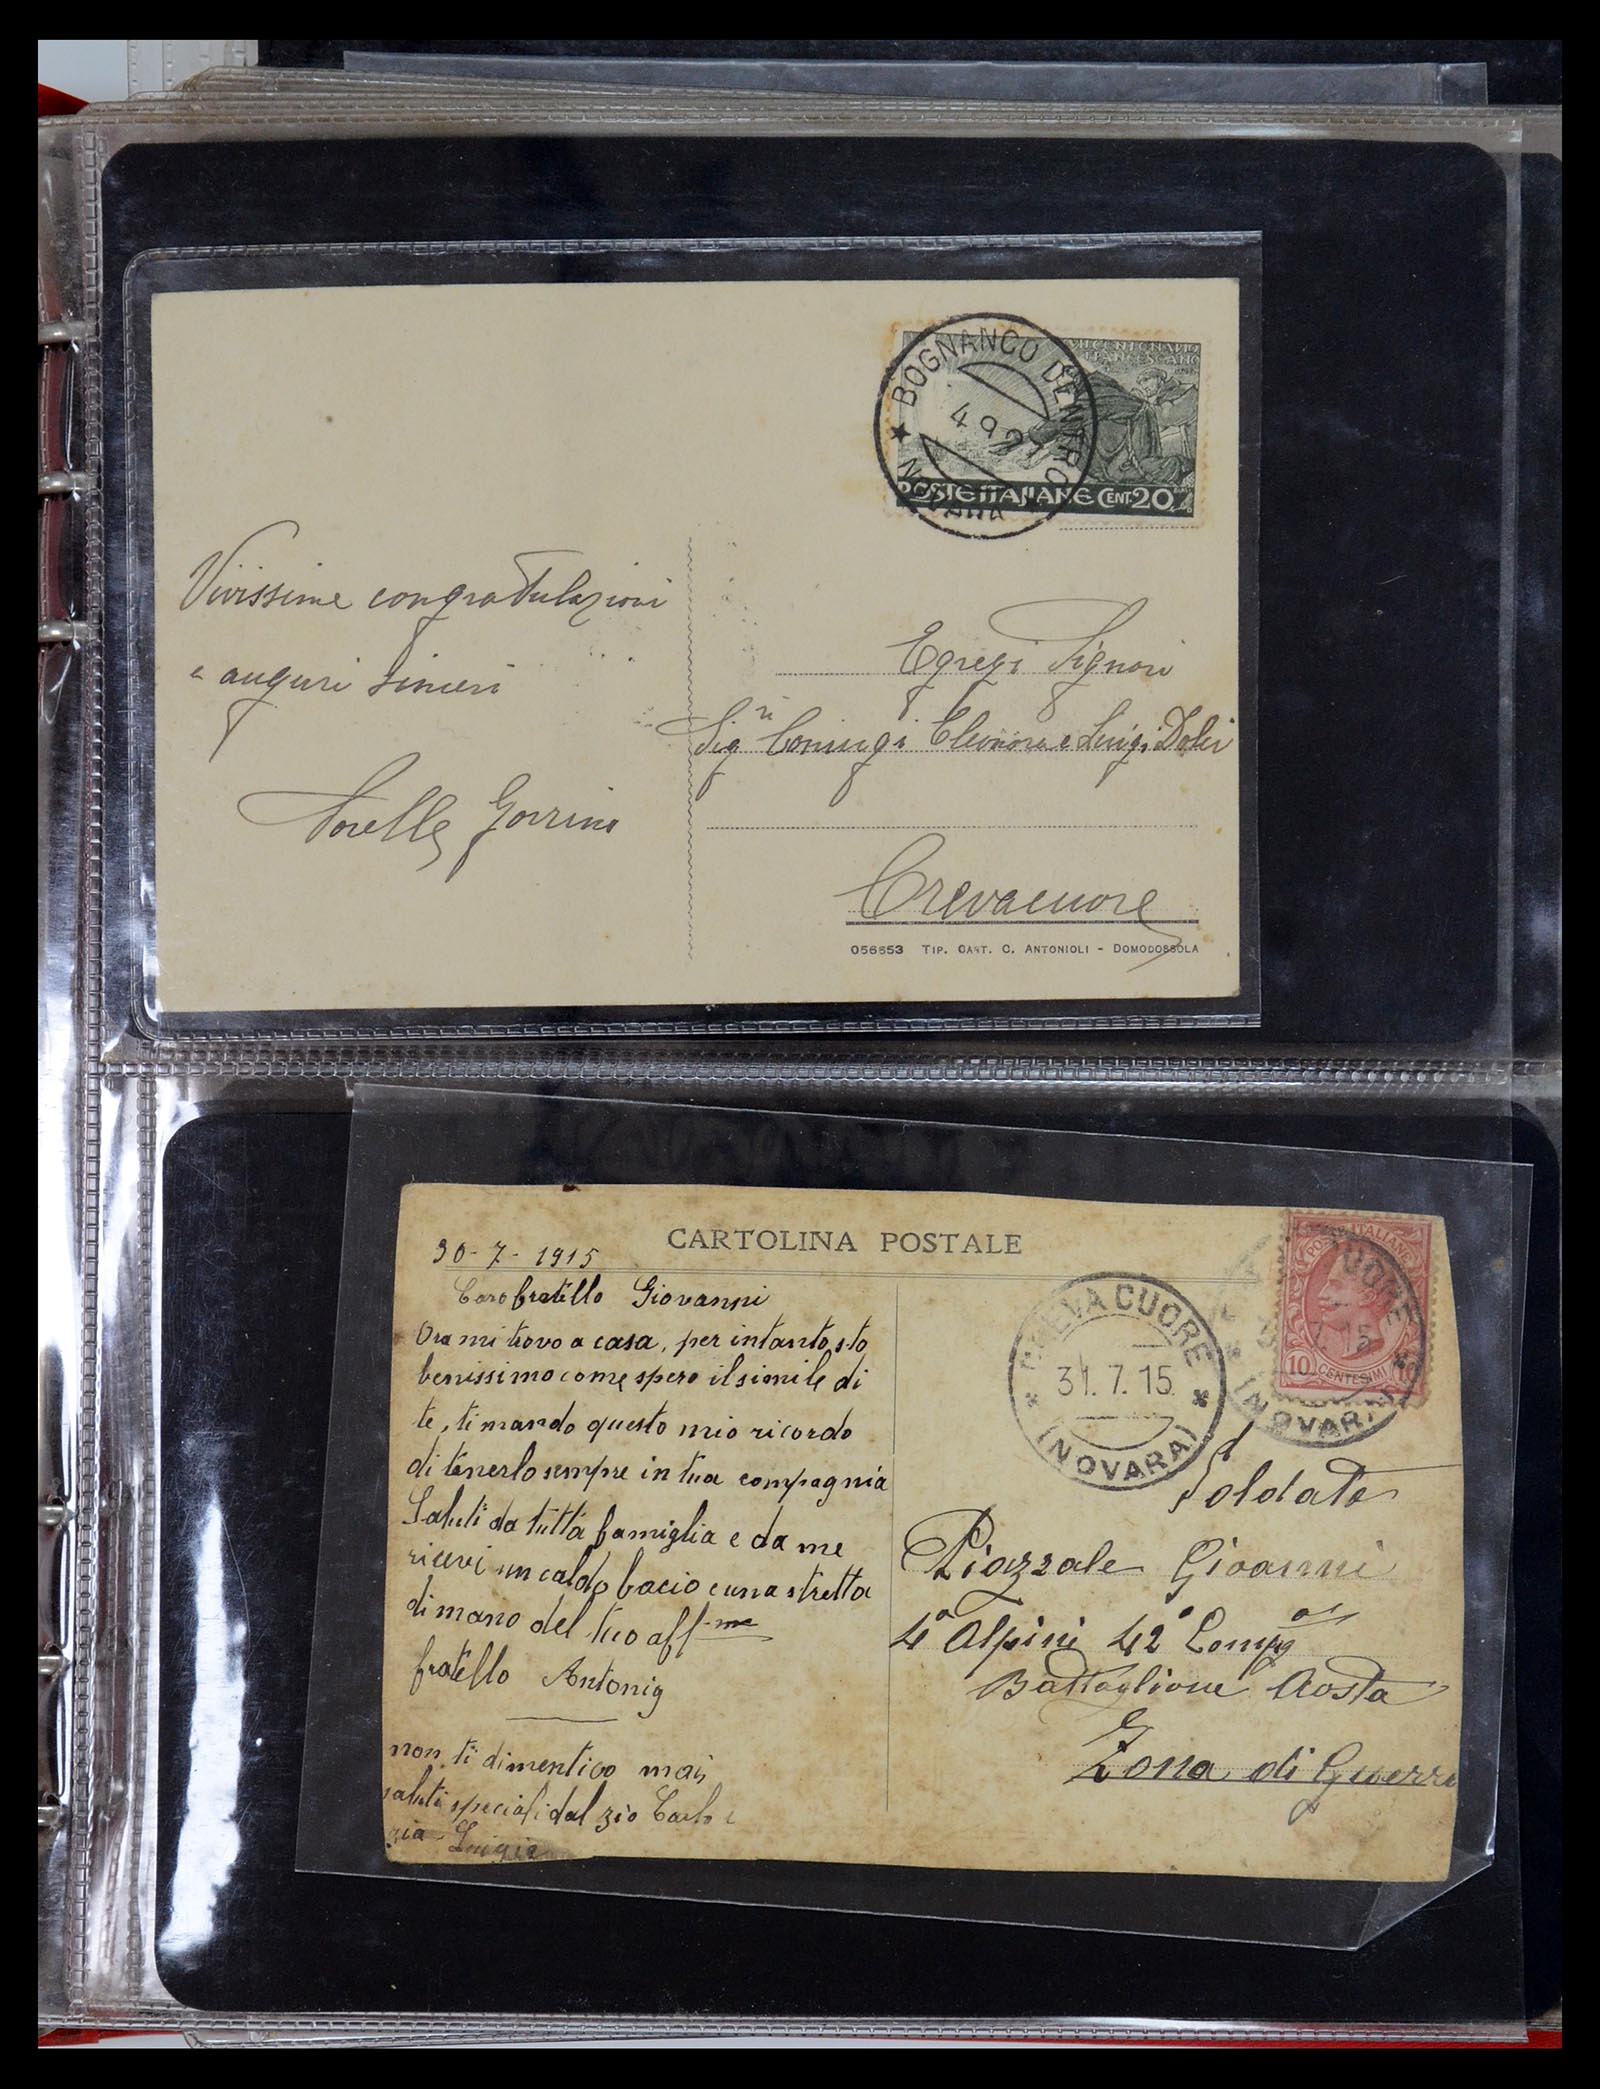 BOGNANCO DENTRO
4 9 2
NOVARA
VII CENTENARIO
FRANCESCANO
POSTE ITALIANE CENT. 20
Vivissime congratulazioni
e auguri sinceri
Sorelle Gorrini
Egregi Signori
Sig.ri Coniugi Eleonora e Luigi Dolci
Crevacuore
056653 TIP. CART. C. ANTONIOLI - DOMODOSSOLA
CARTOLINA POSTALE
30-7-1915
Caro fratello Giovanni
Ora mi trovo a casa, per intanto sto
benissimo come spero il simile di
te, ti mando questo mio ricordo
di tenerlo sempre in tua compagnia
Saluti da tutta famiglia e da me
ricevi un caldo bacio e una stretta
di mano del tuo aff-me
fratello Antonio
non ti dimentico mai
saluti speciali dal zio Carlo e
zia Luigia
CREVACUORE
31.7.15
(NOVARA)
POSTE ITALIANE
10 CENTESIMI 10
UORE
7.15
(NOVARA)
Soldato
Piazzale Gioanni
4° Alpini 42° Compg
Battaglione Aosta
Zona di Guerra